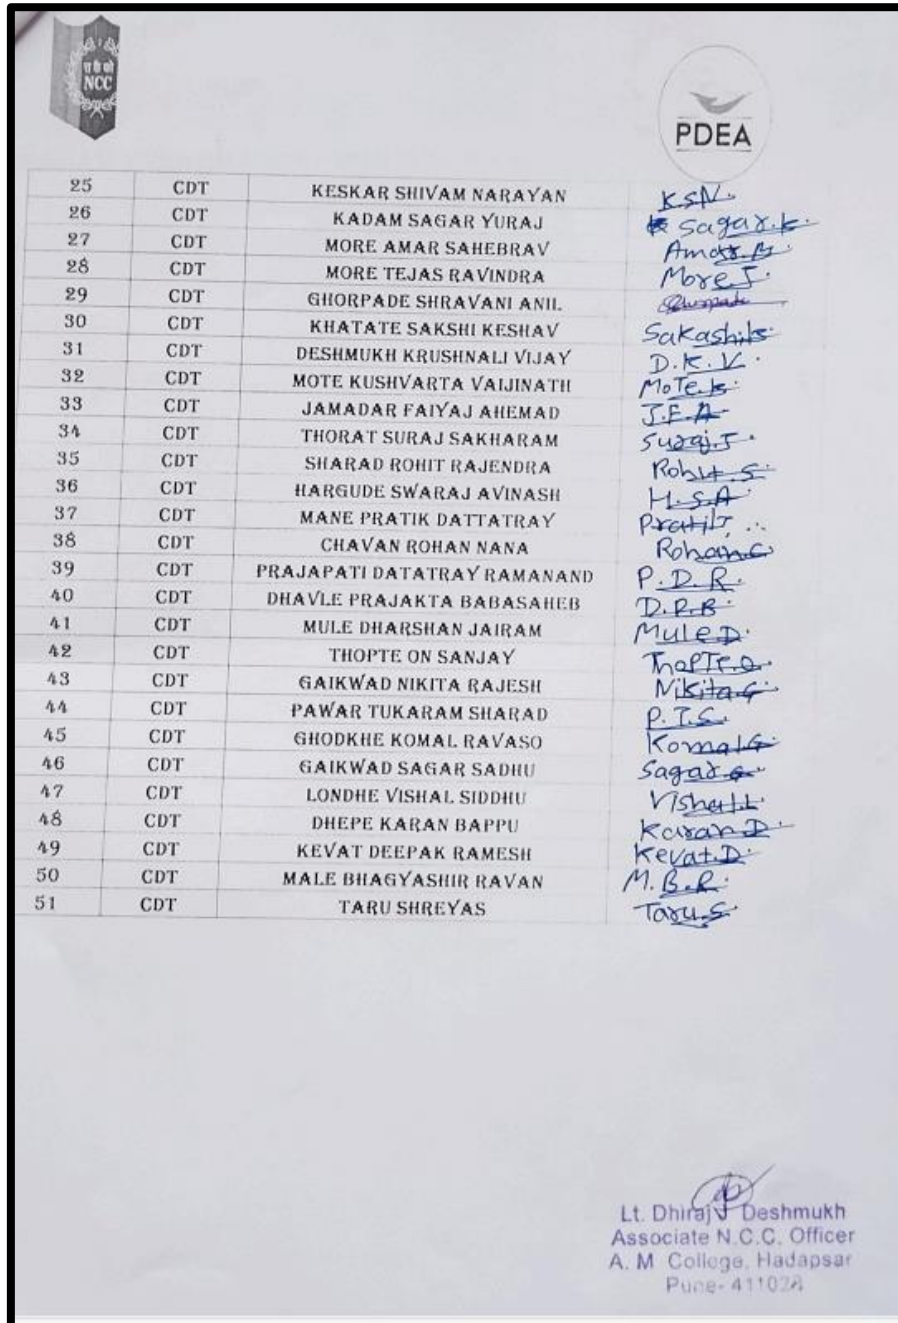 NCC
PDEA
25 CDT KESKAR SHIVAM NARAYAN K.S.N.
26 CDT KADAM SAGAR YURAJ Sagar.k.
27 CDT MORE AMAR SAHEBRAV Amar.M.
28 CDT MORE TEJAS RAVINDRA More T.
29 CDT GHORPADE SHRAVANI ANIL
30 CDT KHATATE SAKSHI KESHAV Sakashi.k.
31 CDT DESHMUKH KRUSHNALI VIJAY D.K.V.
32 CDT MOTE KUSHVARTA VAIJINATH MoTe.k.
33 CDT JAMADAR FAIYAJ AHEMAD J.F.A
34 CDT THORAT SURAJ SAKHARAM Suraj.T.
35 CDT SHARAD ROHIT RAJENDRA Rohit.S.
36 CDT HARGUDE SWARAJ AVINASH H.S.A
37 CDT MANE PRATIK DATTATRAY
38 CDT CHAVAN ROHAN NANA Rohan.C.
39 CDT PRAJAPATI DATATRAY RAMANAND P.D.R.
40 CDT DHAVLE PRAJAKTA BABASAHEB D.P.B.
41 CDT MULE DHARSHAN JAIRAM Mule.D.
42 CDT THOPTE ON SANJAY ThoPTe.O.
43 CDT GAIKWAD NIKITA RAJESH Nikita.G.
44 CDT PAWAR TUKARAM SHARAD P.T.S.
45 CDT GHODKHE KOMAL RAVASO Komal.G.
46 CDT GAIKWAD SAGAR SADHU Sagar.G.
47 CDT LONDHE VISHAL SIDDHU Vishal.L.
48 CDT DHEPE KARAN BAPPU Karan D.
49 CDT KEVAT DEEPAK RAMESH Kevat.D.
50 CDT MALE BHAGYASHIR RAVAN M.B.R.
51 CDT TARU SHREYAS Taru.S.
Lt. Dhiraj J Deshmukh
Associate N.C.C. Officer
A. M College, Hadapsar
Pune- 411028